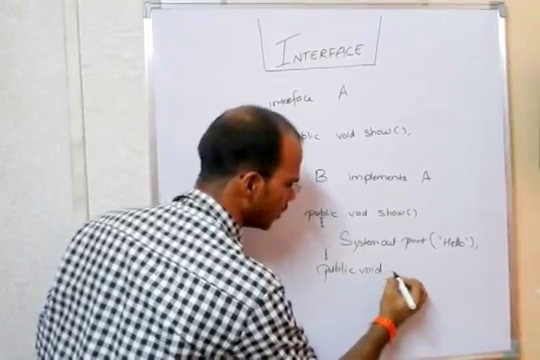 INTERFACE
interface A
void show();
B implements A
public void show()
{
System.out.print("Hello");
}
public void